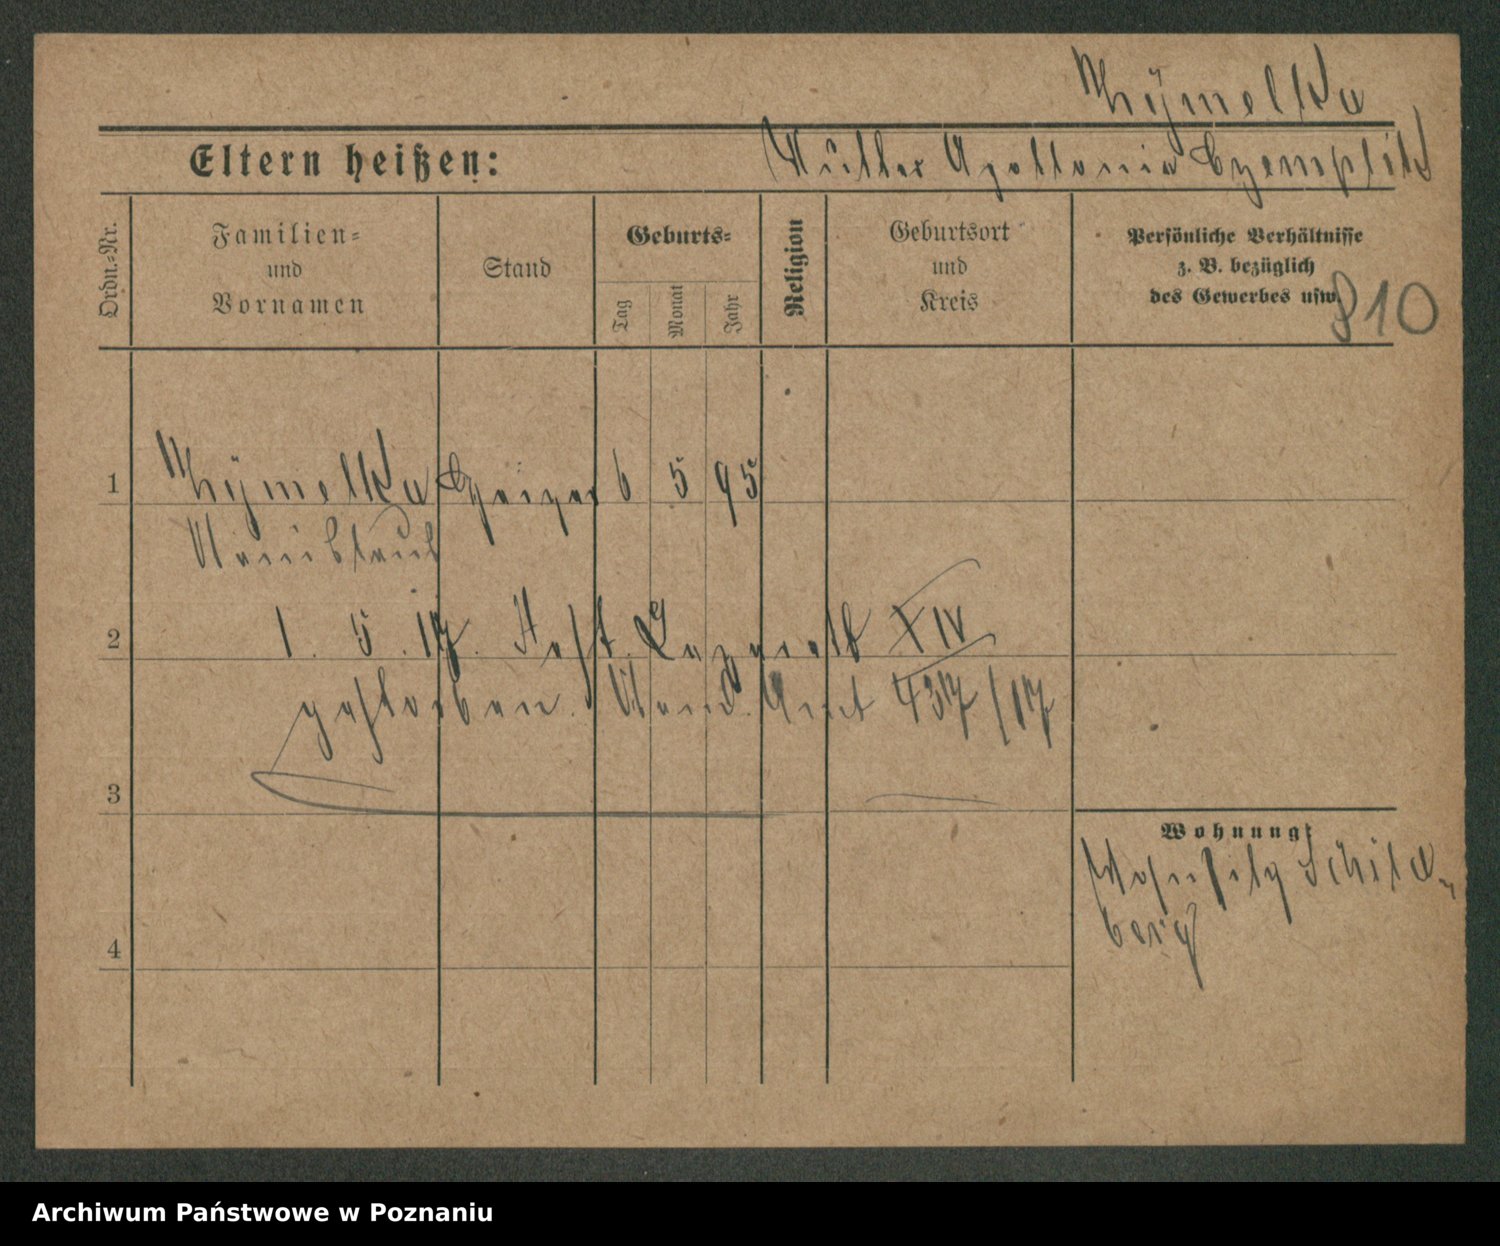 Chÿmelka
Eltern heißen: Mutter Apollonia
Ordn.-Nr.
Familien-
und
Vornamen
Stand
Geburts-
Tag
Monat
Jahr
Religion
Geburtsort
und
Kreis
Persönliche Verhältnisse
z. B. bezüglich
des Gewerbes usw.
810
1 Chÿmelka 6 5 95
2 1. 5. 17. Fest. Lazareth XIV
gestorben. Stand. Amt 437/17
3
4
Wohnung:
Wohnsitz Schild-
berg
Archiwum Państwowe w Poznaniu